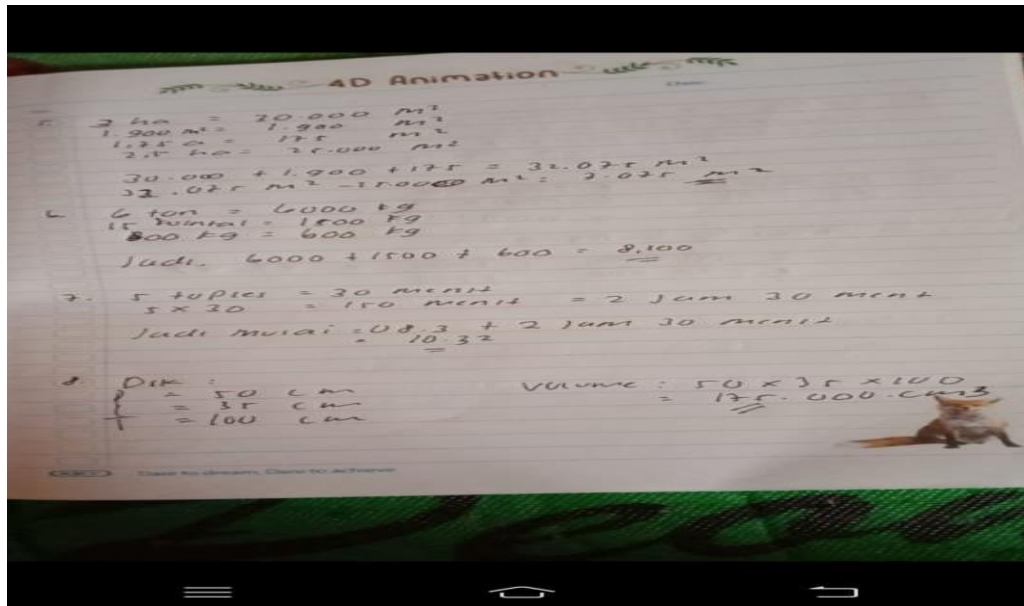 4D Animation
Date:
5. 3 ha = 30.000 m²
1.900 m² = 1.900 m²
1,75 a = 175 m²
2,5 ha = 25.000 m²
30.000 + 1.900 + 175 = 32.075 m²
32.075 m² - 25.000 m² = 7.075 m²
6. 6 ton = 6000 kg
15 kuintal = 1500 kg
600 kg = 600 kg
Jadi. 6000 + 1500 + 600 = 8,100
7. 5 toples = 30 menit
5 x 30 = 150 menit = 2 Jam 30 menit
Jadi mulai = 08.3 + 2 Jam 30 menit
= 10.32
8. Dik :
p = 50 cm
l = 35 cm
t = 100 cm
Volume : 50 x 35 x 100
= 175.000.cm3
Dare to dream, Dare to achieve